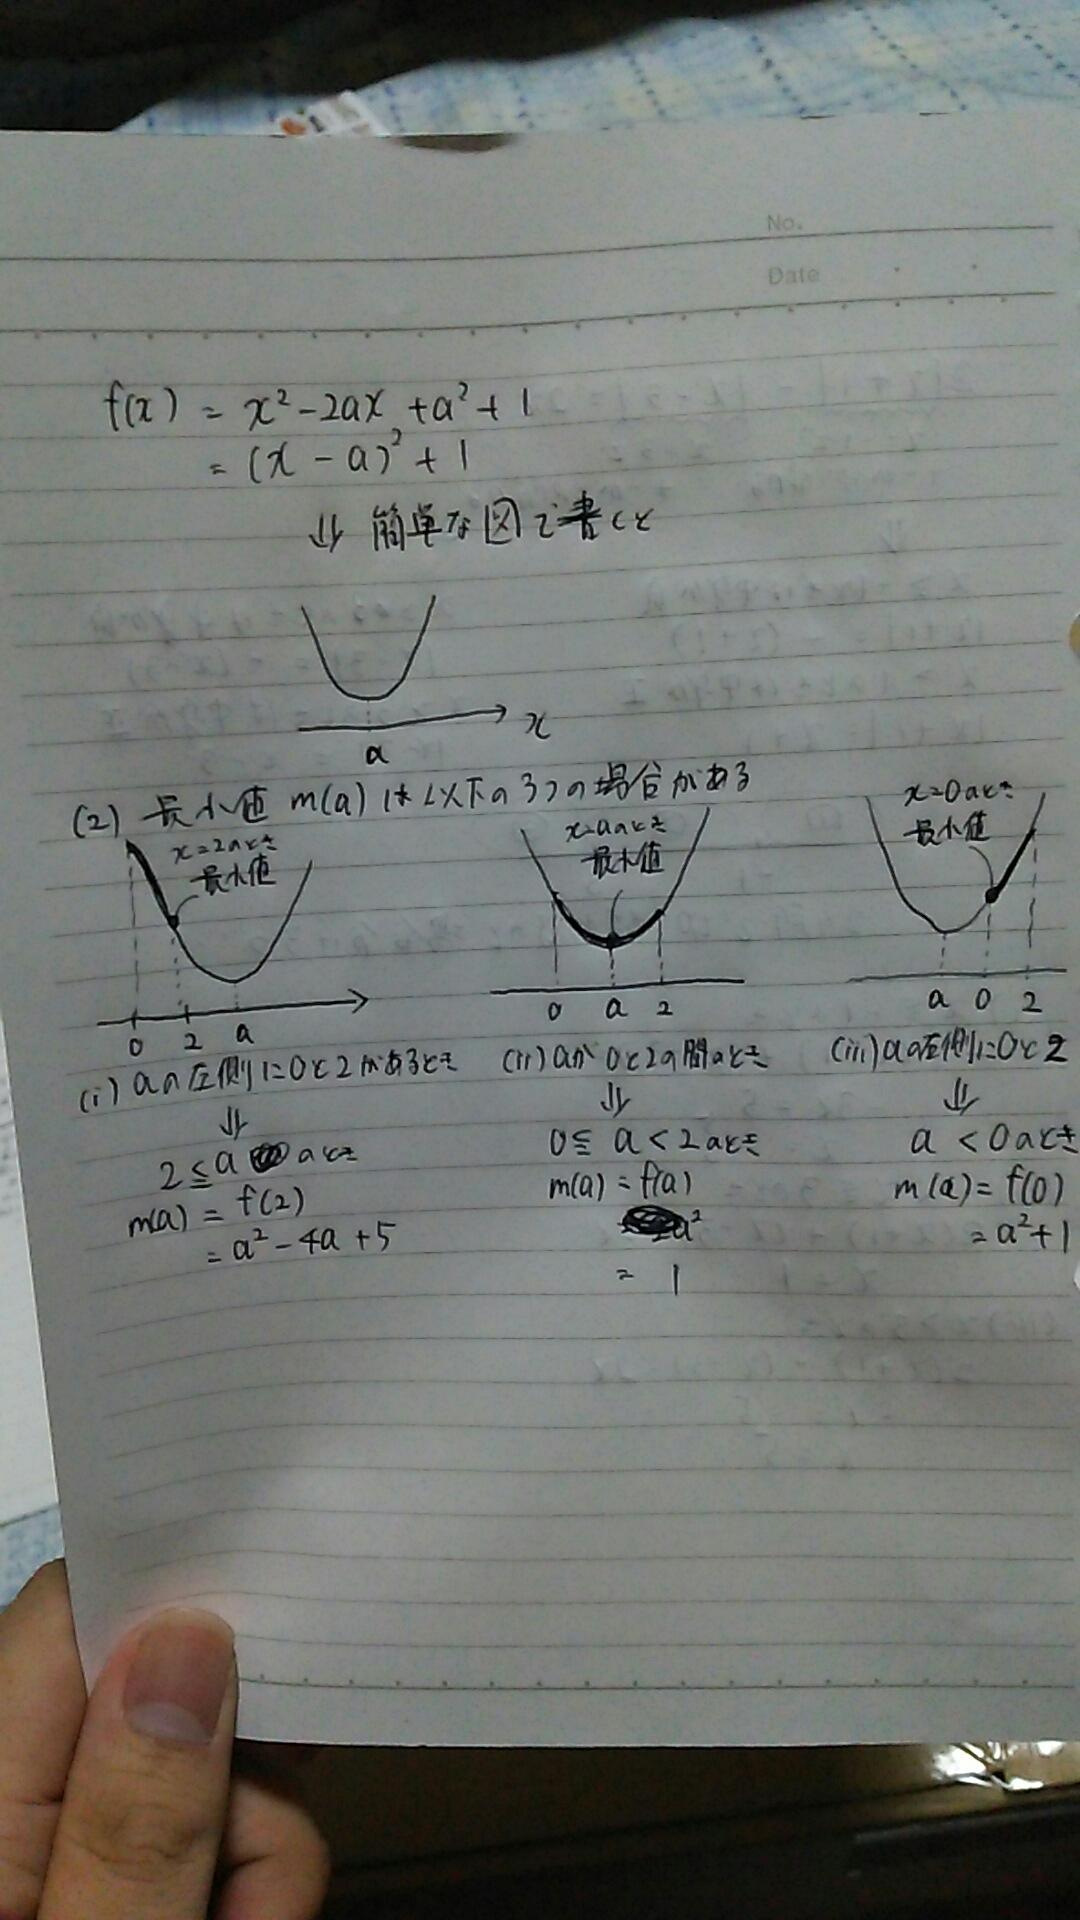 No.
Date
f(x) = x² - 2ax + a² + 1
= (x - a)² + 1
⇓ 簡単な図で書くと
x
a
(2) 最小値 m(a) は以下の3つの場合がある
x=2のとき
最小値
0 2 a
(i) aの左側に0と2があるとき
⇓
2 ≦ a のとき
m(a) = f(2)
= a² - 4a + 5
x=aのとき
最小値
0 a 2
(ii) aが0と2の間のとき
⇓
0 ≦ a < 2のとき
m(a) = f(a)
a²
= 1
x=0のとき
最小値
a 0 2
(iii) aの左側に0と2
⇓
a < 0のとき
m(a) = f(0)
= a² + 1